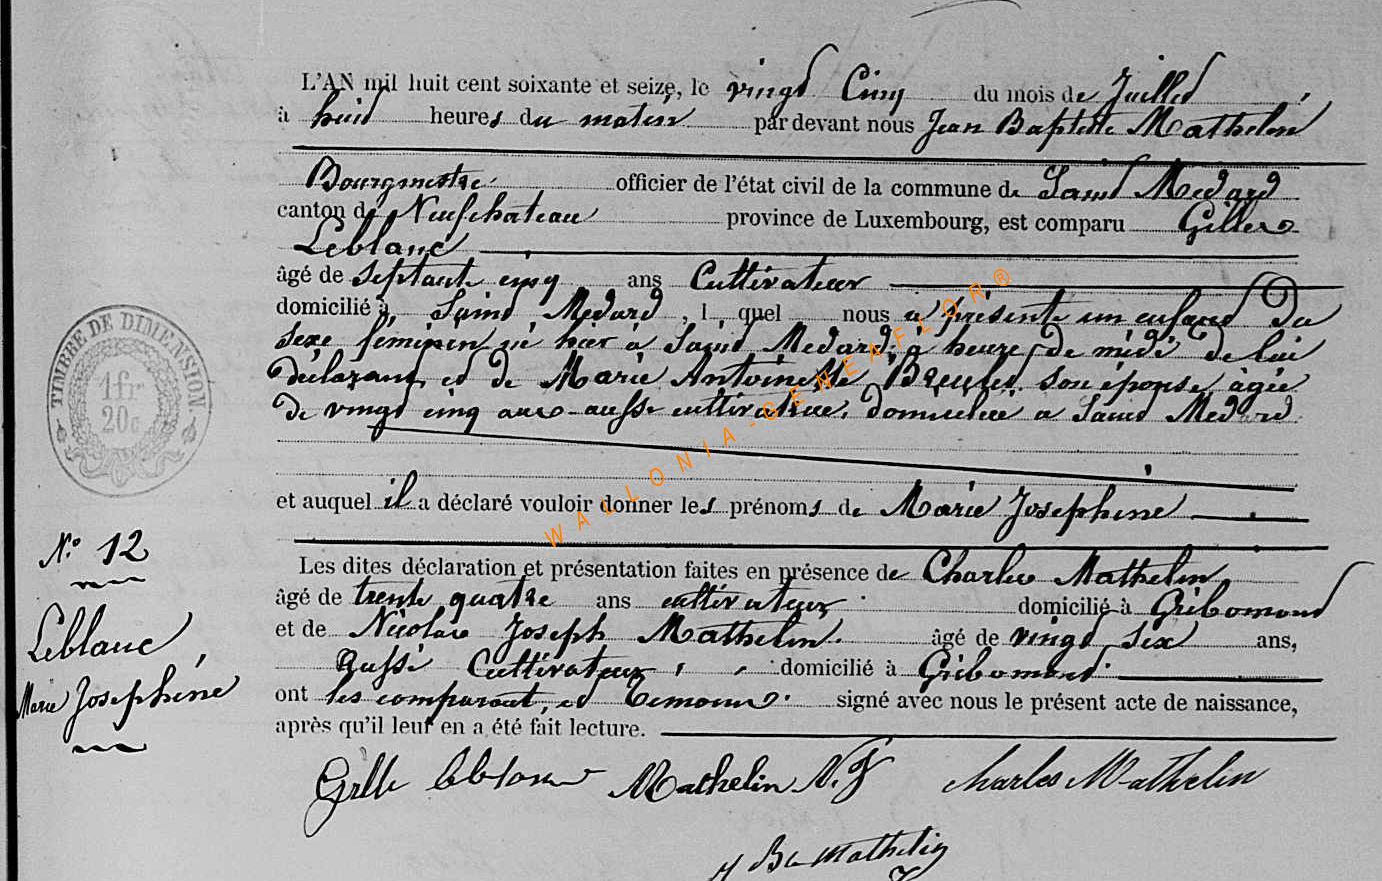 L'AN mil huit cent soixante et seize, le vingt Cinq du mois de Juillet
à huit heures du matin par devant nous Jean Baptiste Mathelin
Bourgmestre officier de l'état civil de la commune de Saint Medard
canton de Neufchateau province de Luxembourg, est comparu Gilles
Leblanc
âgé de septante cinq ans Cultivateur
domicilié à Saint Medard, l quel nous a présenté un enfant Du
sexe féminin né hier à Saint Medard, à heure de midi de lui
déclarant et de Marie Antoinette son épouse âgée
De vingt cinq ans aussi cultivatrice, domiciliée a Saint Medard
et auquel il a déclaré vouloir donner les prénoms de Marie Josephine
Les dites déclaration et présentation faites en présence de Charles Mathelin
âgé de trente quatre ans cultivateur domicilié à Gribomont
et de Nicolas Joseph Mathelin. âgé de vingt six ans,
Aussi Cultivateur, domicilié à Gribomont
ont les comparant, et Temoins signé avec nous le présent acte de naissance,
après qu'il leur en a été fait lecture.
N.° 12
Leblanc,
Marie Josephine
Gille leblanc Mathelin N. J Charles Mathelin
J Bte Mathelin
TIMBRE DE DIMENSION.
1 fr
20 c.
WALLONIA-GENEAFLOR®